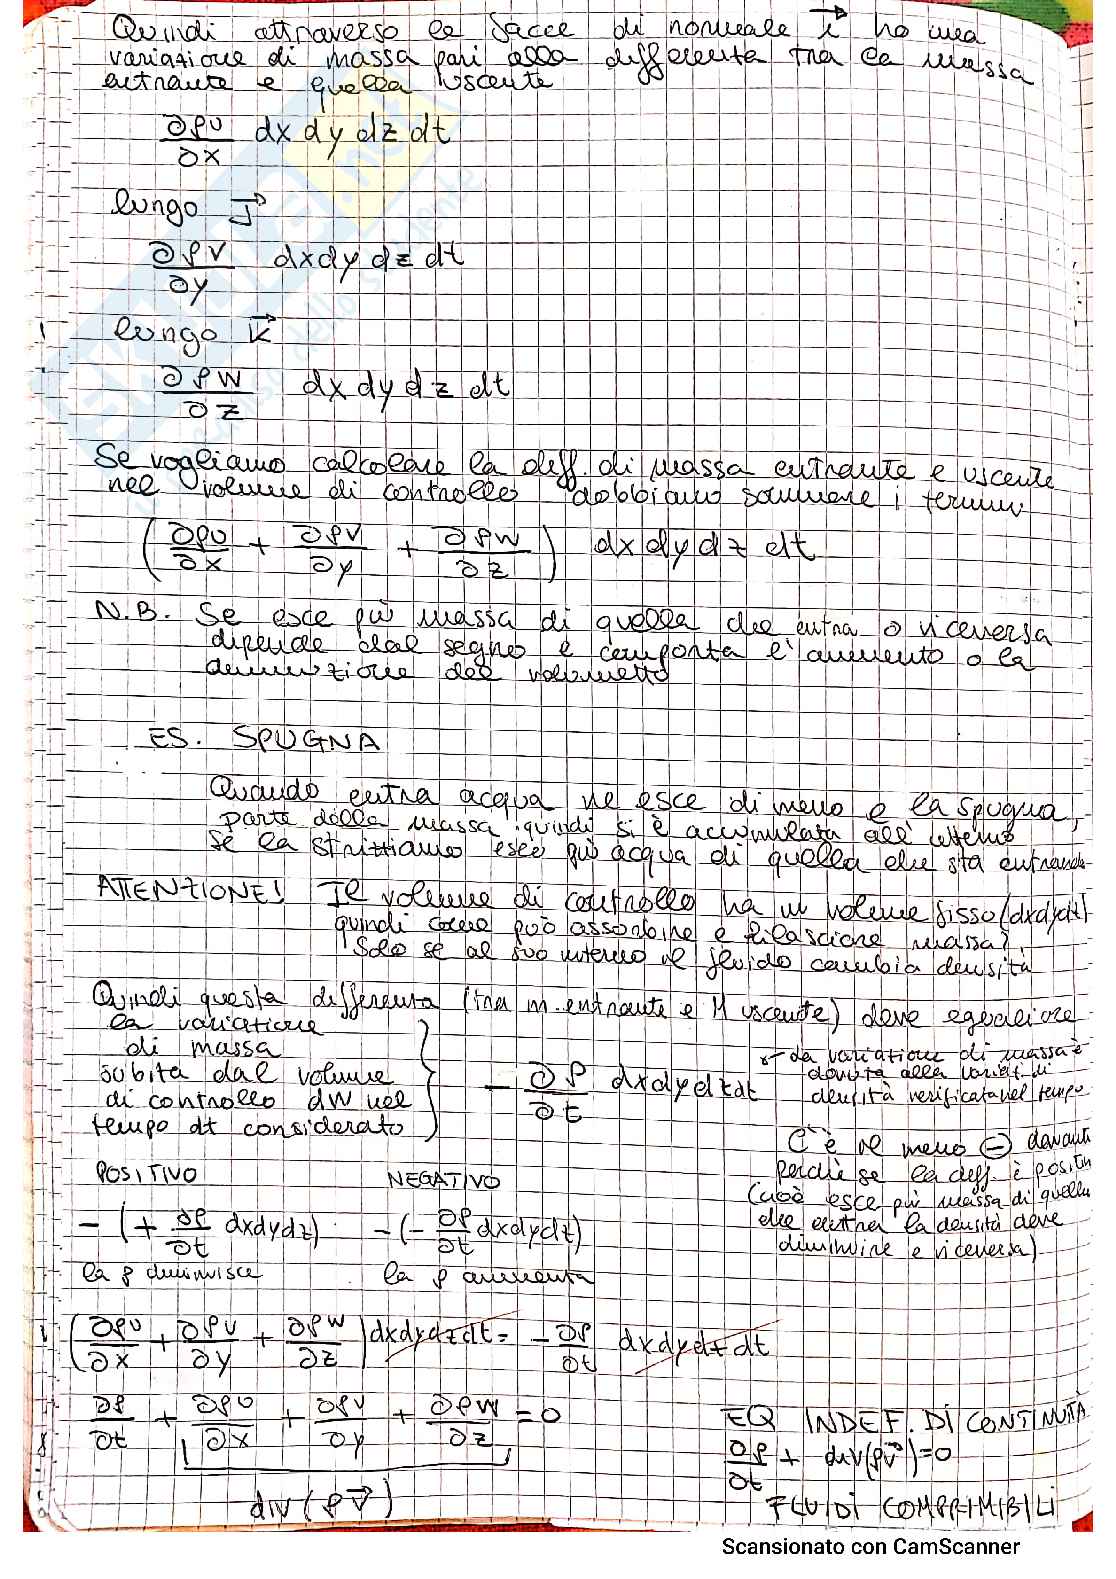 Quindi attraverso le facce di normale i⃗ ho una
variazione di massa pari alla differenza tra la massa
entrante e quella uscente
∂ρU/∂x dx dy dz dt
lungo j⃗
∂ρV/∂y dx dy dz dt
lungo k⃗
∂ρW/∂z dx dy dz dt
Se vogliamo calcolare la diff. di massa entrante e uscente
nel volume di controllo dobbiamo sommare i termini
(∂ρU/∂x + ∂ρV/∂y + ∂ρW/∂z) dx dy dz dt
N.B. Se esce più massa di quella che entra o viceversa
dipende dal segno e comporta l'aumento o la
diminuzione del volumetto
ES. SPUGNA
Quando entra acqua ne esce di meno e la spugna,
parte della massa quindi si è accumulata all'interno
Se la strizziamo esce più acqua di quella che sta entrando
ATTENZIONE! Il volume di controllo ha un volume fisso (dxdydz)
quindi come può assorbire e rilasciare massa?
Solo se al suo interno il fluido cambia densità
Quindi questa differenza (tra m. entrante e M uscente) deve eguagliare
la variazione
di massa
subita dal volume
di controllo dW nel
tempo dt considerato
- ∂ρ/∂t dxdydzdt
La variazione di massa è
dovuta alla variaz. di
densità verificata nel tempo
C'è il meno (-) davanti
perchè se la diff. è positiv
(cioè esce più massa di quella
che entra la densità deve
diminuire e viceversa)
POSITIVO NEGATIVO
- (+ ∂ρ/∂t dxdydz) - (- ∂ρ/∂t dxdydz)
la ρ diminuisce la ρ aumenta
(∂ρU/∂x + ∂ρV/∂y + ∂ρW/∂z) dxdydzdt = - ∂ρ/∂t dxdydzdt
∂ρ/∂t + ∂ρU/∂x + ∂ρV/∂y + ∂ρW/∂z = 0
div(ρV⃗)
EQ INDEF. DI CONTINUITÀ
∂ρ/∂t + div(ρv⃗) = 0
FLUIDI COMPRIMIBILI
Scansionato con CamScanner